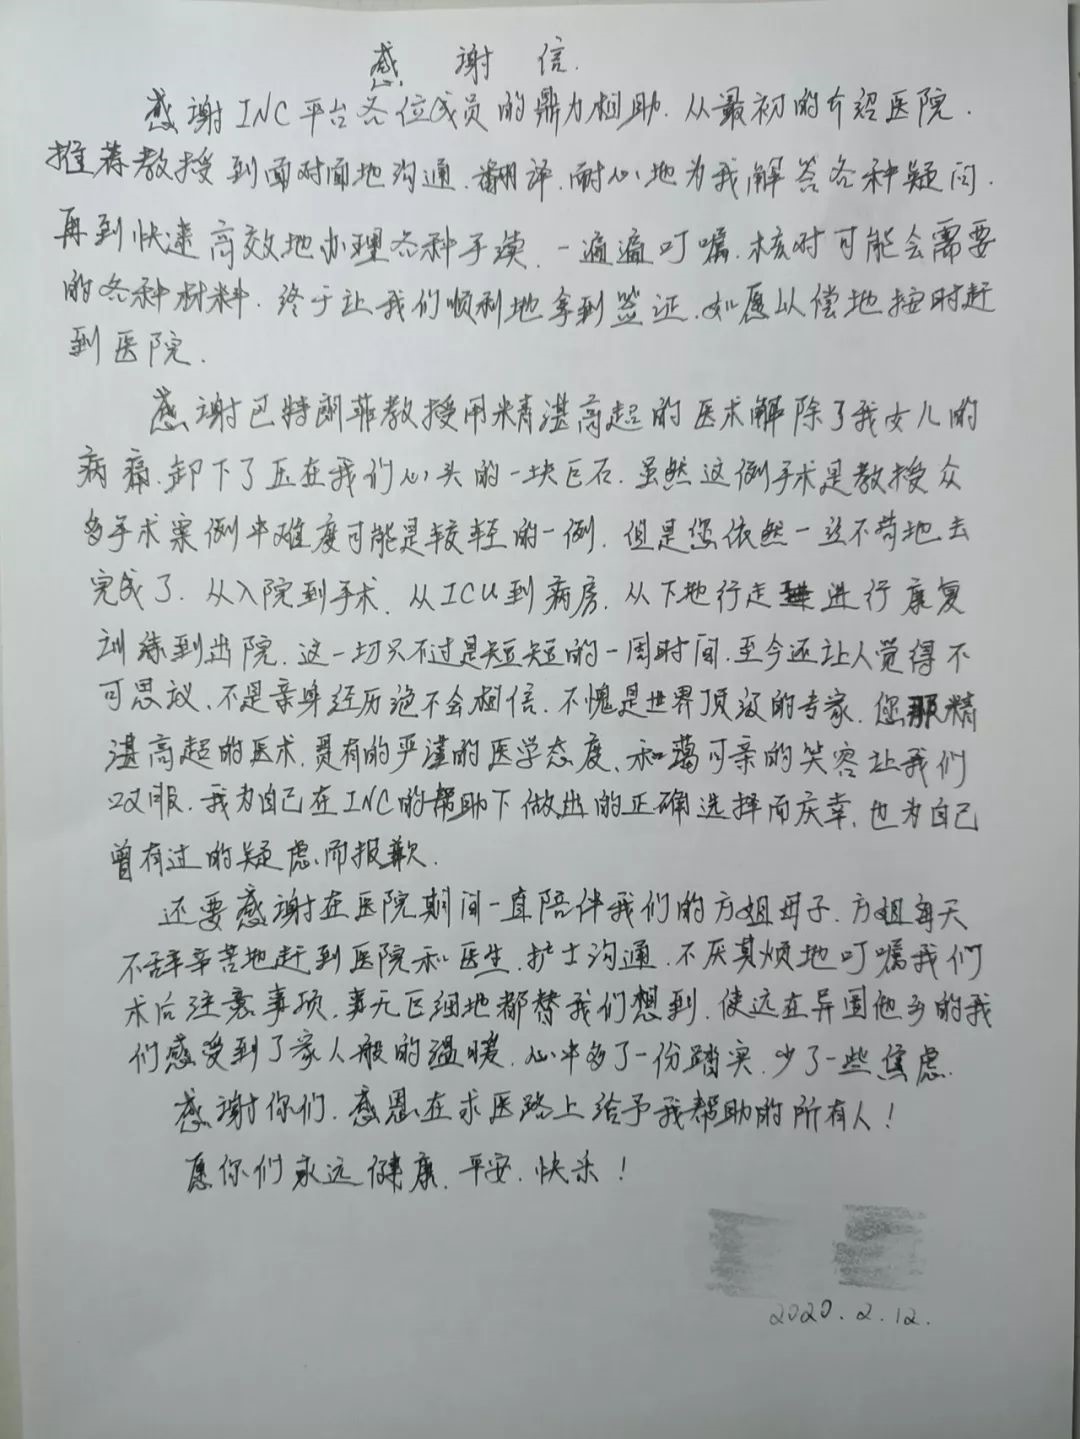 感谢信.
感谢INC平台各位成员的鼎力相助.从最初的介绍医院.
推荐教授到面对面地沟通、翻译、耐心地为我解答各种疑问.
再到快速高效地办理各种手续、一遍遍叮嘱、核对可能会需要
的各种材料.终于让我们顺利地拿到签证、如愿以偿地按时赶
到医院.
感谢巴特朗菲教授用精湛高超的医术解除了我女儿的
病痛、卸下了压在我们心头的一块巨石.虽然这例手术是教授众
多手术案例中难度可能是较轻的一例.但是您依然一丝不苟地去
完成了.从入院到手术、从ICU到病房、从下地行走进行康复
训练到出院、这一切只不过是短短的一周时间、至今还让人觉得不
可思议、不是亲身经历绝不会相信.不愧是世界顶级的专家、您那精
湛高超的医术、具有的严谨的医学态度、和蔼可亲的笑容让我们
叹服.我为自己在INC的帮助下做出的正确选择而庆幸、也为自己
曾有过的疑虑而报歉.
还要感谢在医院期间一直陪伴我们的方姐母子.方姐每天
不辞辛苦地赶到医院和医生、护士沟通、不厌其烦地叮嘱我们
术后注意事项、事无巨细地都替我们想到、使远在异国他乡的我
们感受到了家人般的温暖、心中多了一份踏实、少了一些焦虑.
感谢你们、感恩在求医路上给予我帮助的所有人!
愿你们永远健康、平安、快乐!
2020.2.12.